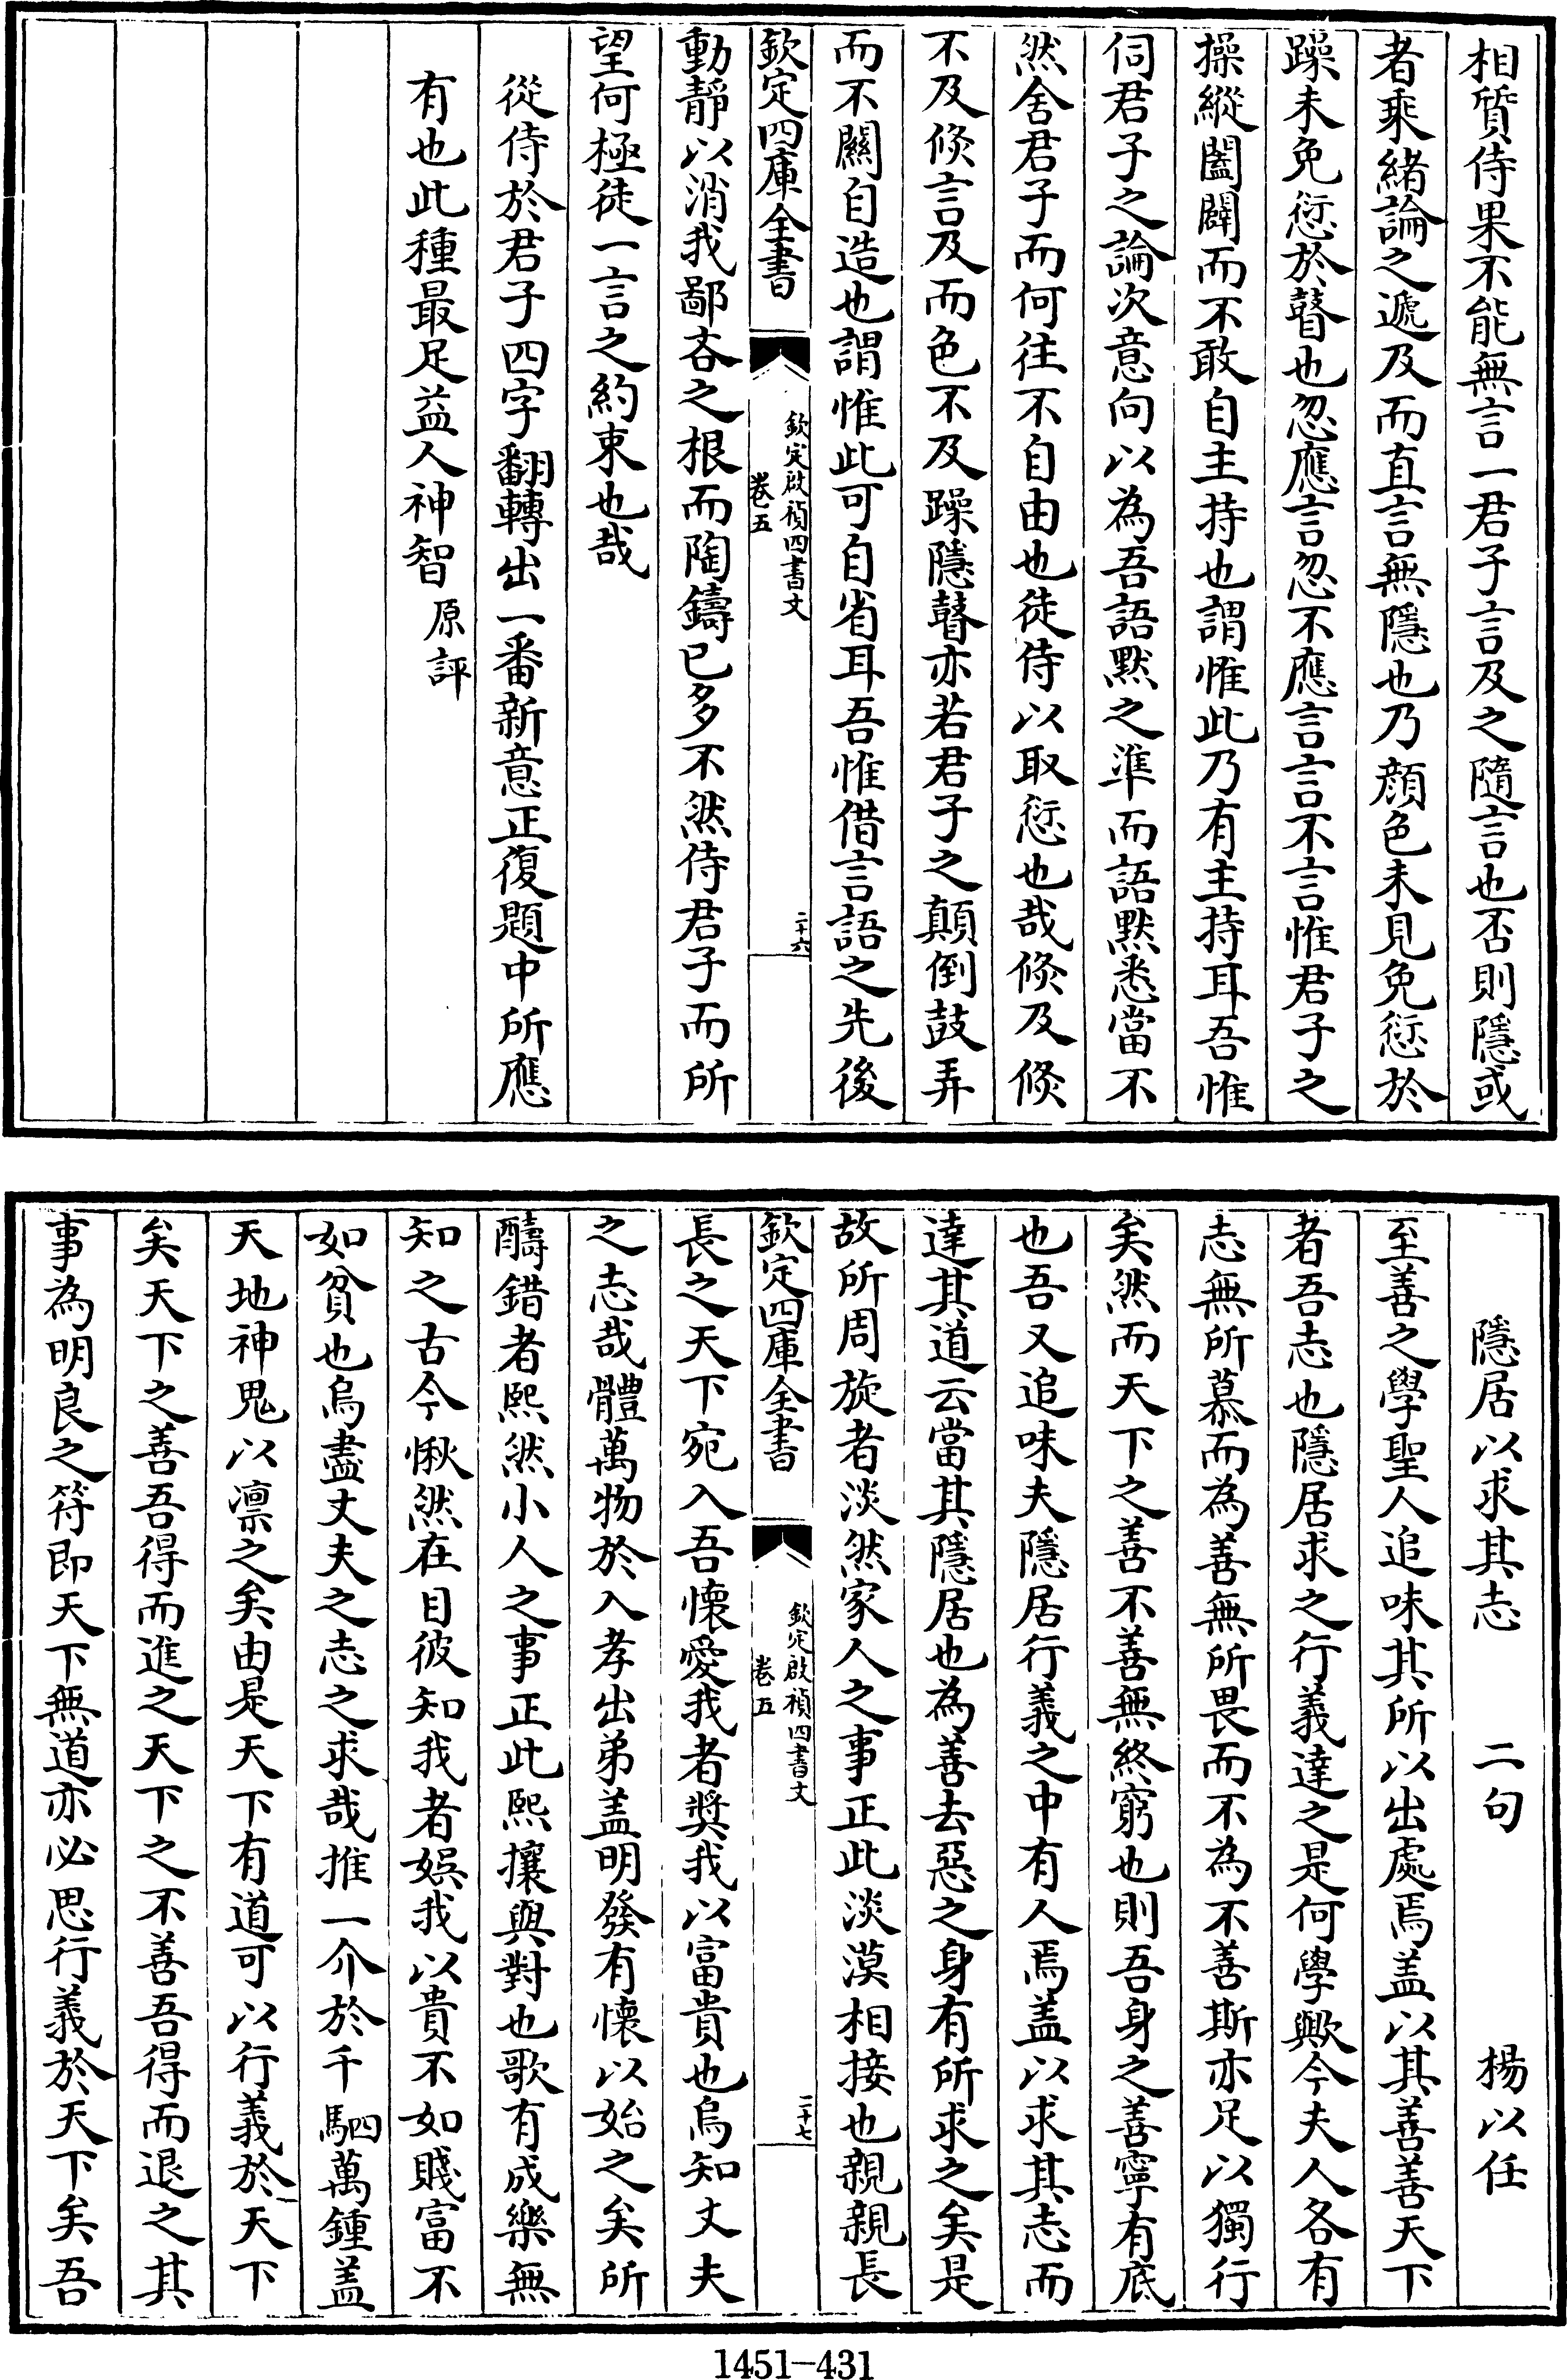 相質侍果不能無言一君子言及之隨言也否則隱或
者乘緒論之遞及而直言無隱也乃顏色未見免愆於
躁未免愆於瞽也忽應言忽不應言言不言惟君子之
操縱闔闢而不敢自主持也謂惟此乃有主持耳吾惟
伺君子之論次意向以為吾語默之準而語默悉當不
然舍君子而何往不自由也徒侍以取愆也哉倐及倐
不及倐言及而色不及躁隱瞽亦若君子之顛倒鼓弄
而不關自造也謂惟此可自省耳吾惟借言語之先後
欽定四庫全書
欽定啟禎四書文
卷五
二十六
動靜以消我鄙吝之根而陶鑄已多不然侍君子而所
望何極徒一言之約束也哉
從侍於君子四字翻轉出一番新意正復題中所應
有也此種最足益人神智 原評
隱居以求其志 二句 楊以任
至善之學聖人追味其所以出處焉盖以其善善天下
者吾志也隱居求之行義達之是何學歟今夫人各有
志無所慕而為善無所畏而不為不善斯亦足以獨行
矣然而天下之善不善無終窮也則吾身之善寧有底
也吾又追味夫隱居行義之中有人焉盖以求其志而
達其道云當其隱居也為善去惡之身有所求之矣是
故所周旋者淡然家人之事正此淡漠相接也親親長
欽定四庫全書
欽定啟禎四書文
卷五
二十七
長之天下宛入吾懷愛我者奬我以富貴也烏知丈夫
之志哉體萬物於入孝出弟盖明發有懷以始之矣所
醻錯者熙然小人之事正此熙攘與對也歌有成樂無
知之古今愀然在目彼知我者娱我以貴不如賤富不
如貧也烏盡丈夫之志之求哉推一介於千駟萬鍾盖
天地神鬼以凛之矣由是天下有道可以行義於天下
矣天下之善吾得而進之天下之不善吾得而退之其
事為明良之符即天下無道亦必思行義於天下矣吾
1451—431